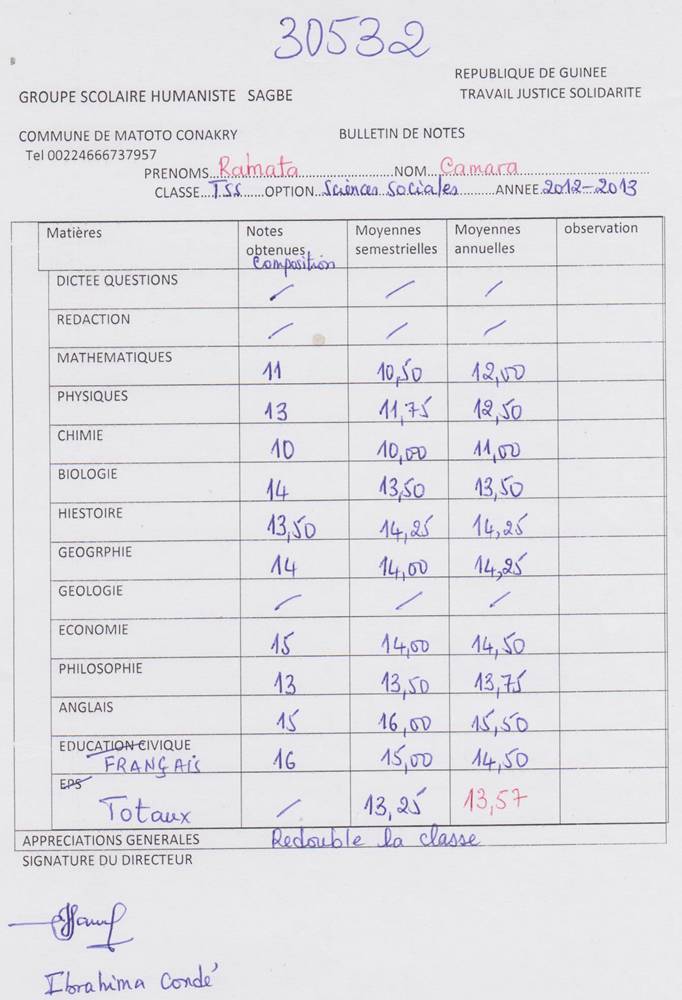 30532
REPUBLIQUE DE GUINEE
GROUPE SCOLAIRE HUMANISTE SAGBE
TRAVAIL JUSTICE SOLIDARITE
COMMUNE DE MATOTO CONAKRY BULLETIN DE NOTES
Tel 00224666737957
PRENOMS Ramata NOM Camara
CLASSE TSS OPTION Sciences Sociales ANNEE 2012-2013
Matières Notes obtenues Composition Moyennes semestrielles Moyennes annuelles observation
DICTEE QUESTIONS / / /
REDACTION / / /
MATHEMATIQUES 11 10,50 12,00
PHYSIQUES 13 11,75 12,50
CHIMIE 10 10,00 11,00
BIOLOGIE 14 13,50 13,50
HIESTOIRE 13,50 14,25 14,25
GEOGRPHIE 14 14,00 14,25
GEOLOGIE / / /
ECONOMIE 15 14,00 14,50
PHILOSOPHIE 13 13,50 13,75
ANGLAIS 15 16,00 15,50
EDUCATION CIVIQUE
FRANÇAIS 16 15,00 14,50
EPS
Totaux / 13,25 13,57
APPRECIATIONS GENERALES Redouble la classe
SIGNATURE DU DIRECTEUR
Ibrahima Condé